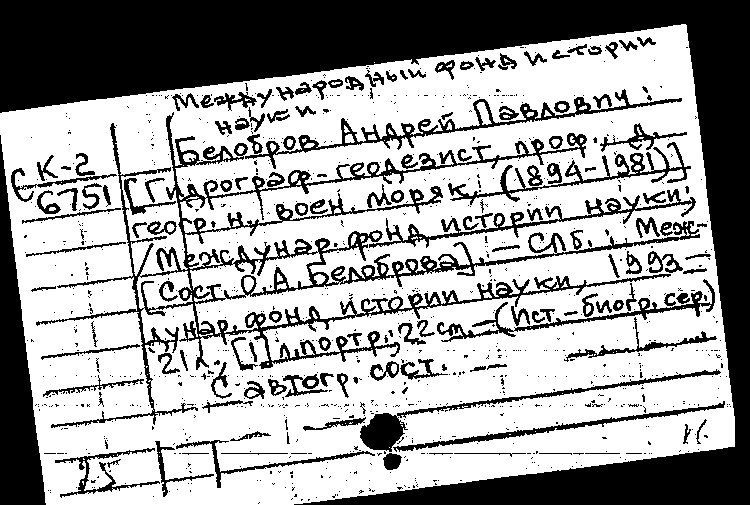 Международный фонд истории
науки.
Белобров Андрей Павлович:
СК-2
6751
[Гидрограф-геодезист, проф., д.
геогр. н., воен. моряк, (1894-1981)]
/Междунар. фонд истории науки;
[Сост. О. А. Белоброва]. — СПб.: Меж-
дунар. фонд истории науки, 1993 —
21 л., [1] л. портр.; 22 см. — (Ист.-биогр. сер.)
С автогр. сост. —